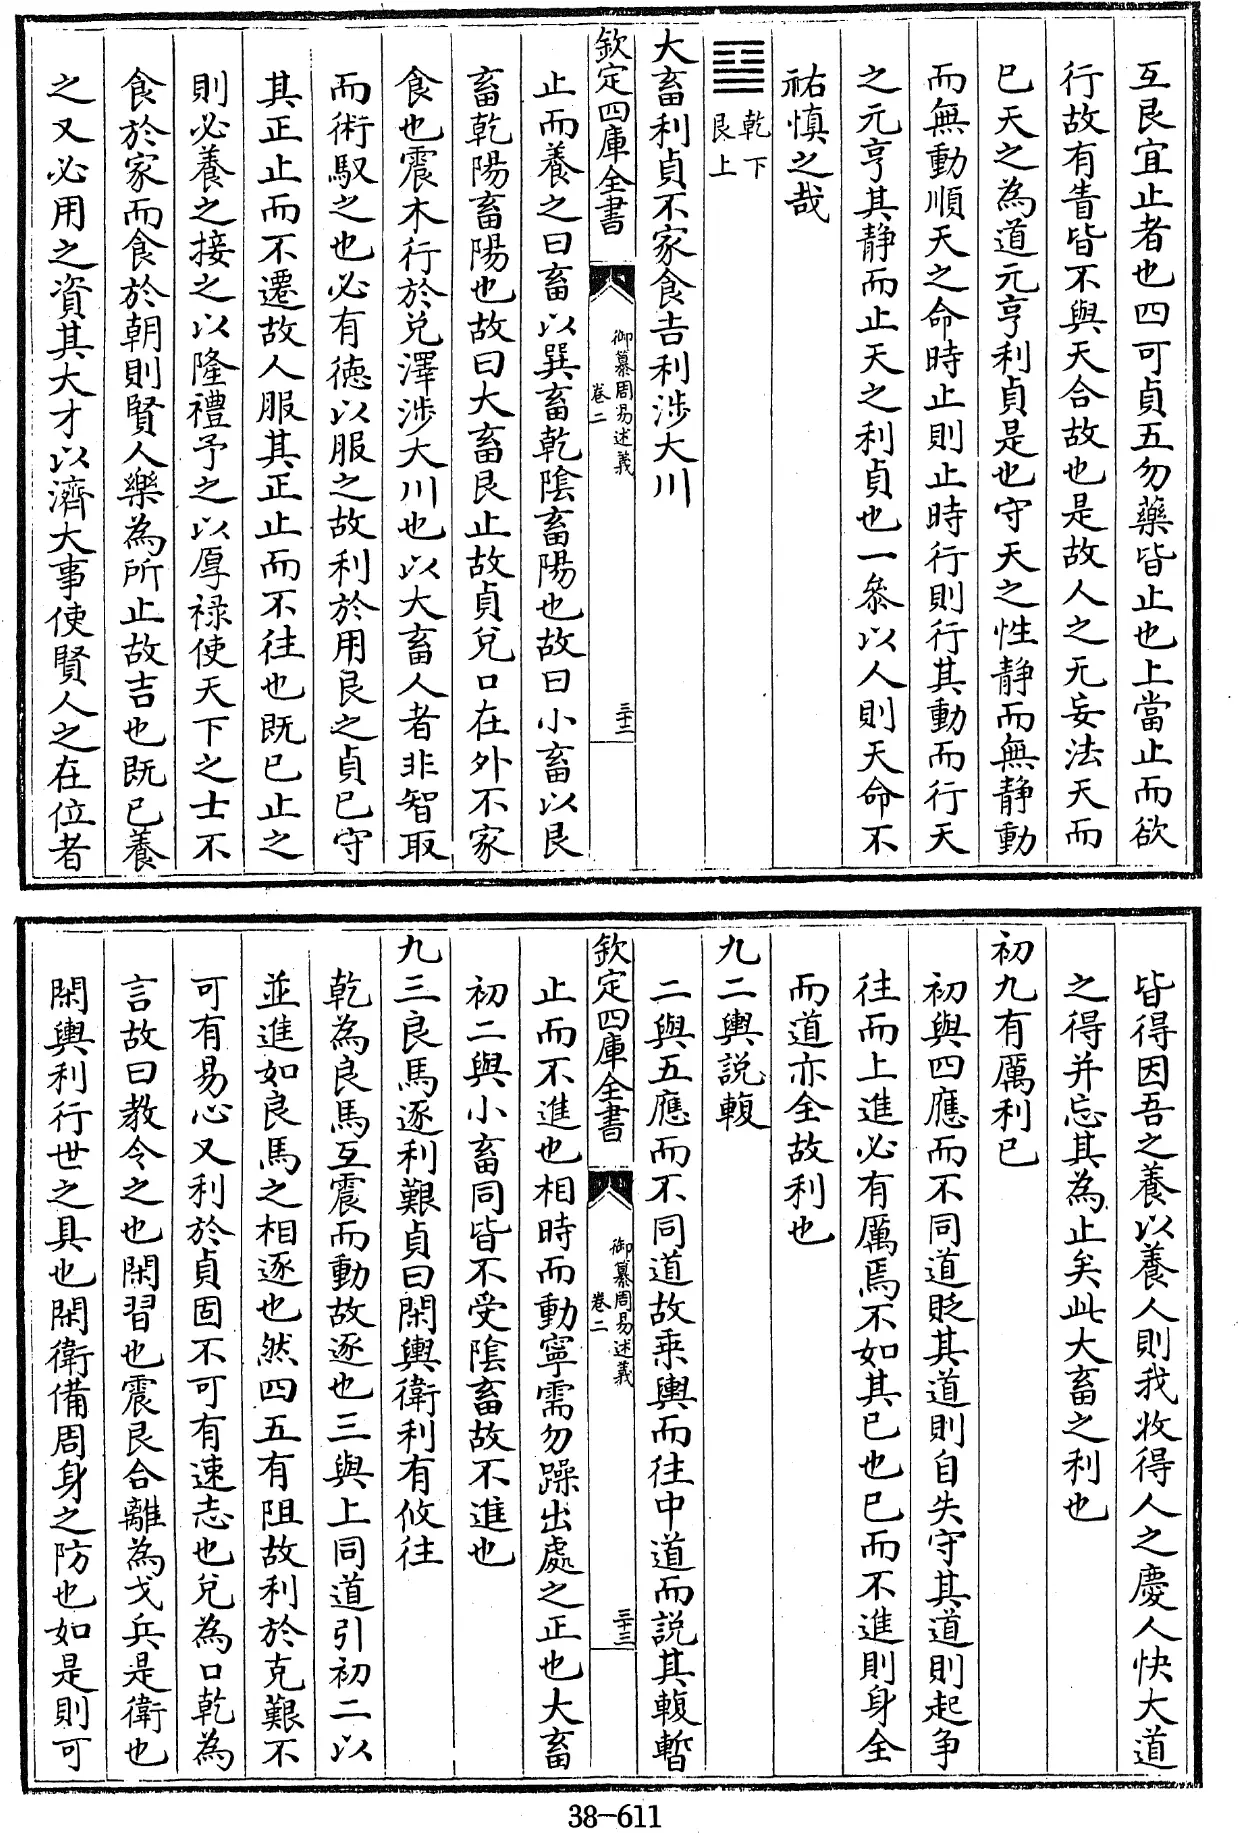 互艮宜止者也四可貞五勿藥皆止也上當止而欲
行故有眚皆不與天合故也是故人之无妄法天而
已天之為道元亨利貞是也守天之性靜而無靜動
而無動順天之命時止則止時行則行其動而行天
之元亨其靜而止天之利貞也一叅以人則天命不
祐慎之哉
乾下
艮上
大畜利貞不家食吉利涉大川
欽定四庫全書
御纂周易述義
卷二
三十二
止而養之曰畜以巽畜乾陰畜陽也故曰小畜以艮
畜乾陽畜陽也故曰大畜艮止故貞兌口在外不家
食也震木行於兌澤涉大川也以大畜人者非智取
而術馭之也必有德以服之故利於用艮之貞已守
其正止而不遷故人服其正止而不往也既已止之
則必養之接之以隆禮予之以厚祿使天下之士不
食於家而食於朝則賢人樂為所止故吉也既已養
之又必用之資其大才以濟大事使賢人之在位者
皆得因吾之養以養人則我收得人之慶人快大道
之得并忘其為止矣此大畜之利也
初九有厲利已
初與四應而不同道貶其道則自失守其道則起爭
往而上進必有厲焉不如其已也已而不進則身全
而道亦全故利也
九二輿說輹
二與五應而不同道故乘輿而往中道而說其輹暫
欽定四庫全書
御纂周易述義
卷二
三十三
止而不進也相時而動寧需勿躁出處之正也大畜
初二與小畜同皆不受陰畜故不進也
九三良馬逐利艱貞曰閑輿衛利有攸往
乾為良馬互震而動故逐也三與上同道引初二以
並進如良馬之相逐也然四五有阻故利於克艱不
可有易心又利於貞固不可有速志也兌為口乾為
言故曰教令之也閑習也震艮合離為戈兵是衛也
閑輿利行世之具也閑衛備周身之防也如是則可
38-611